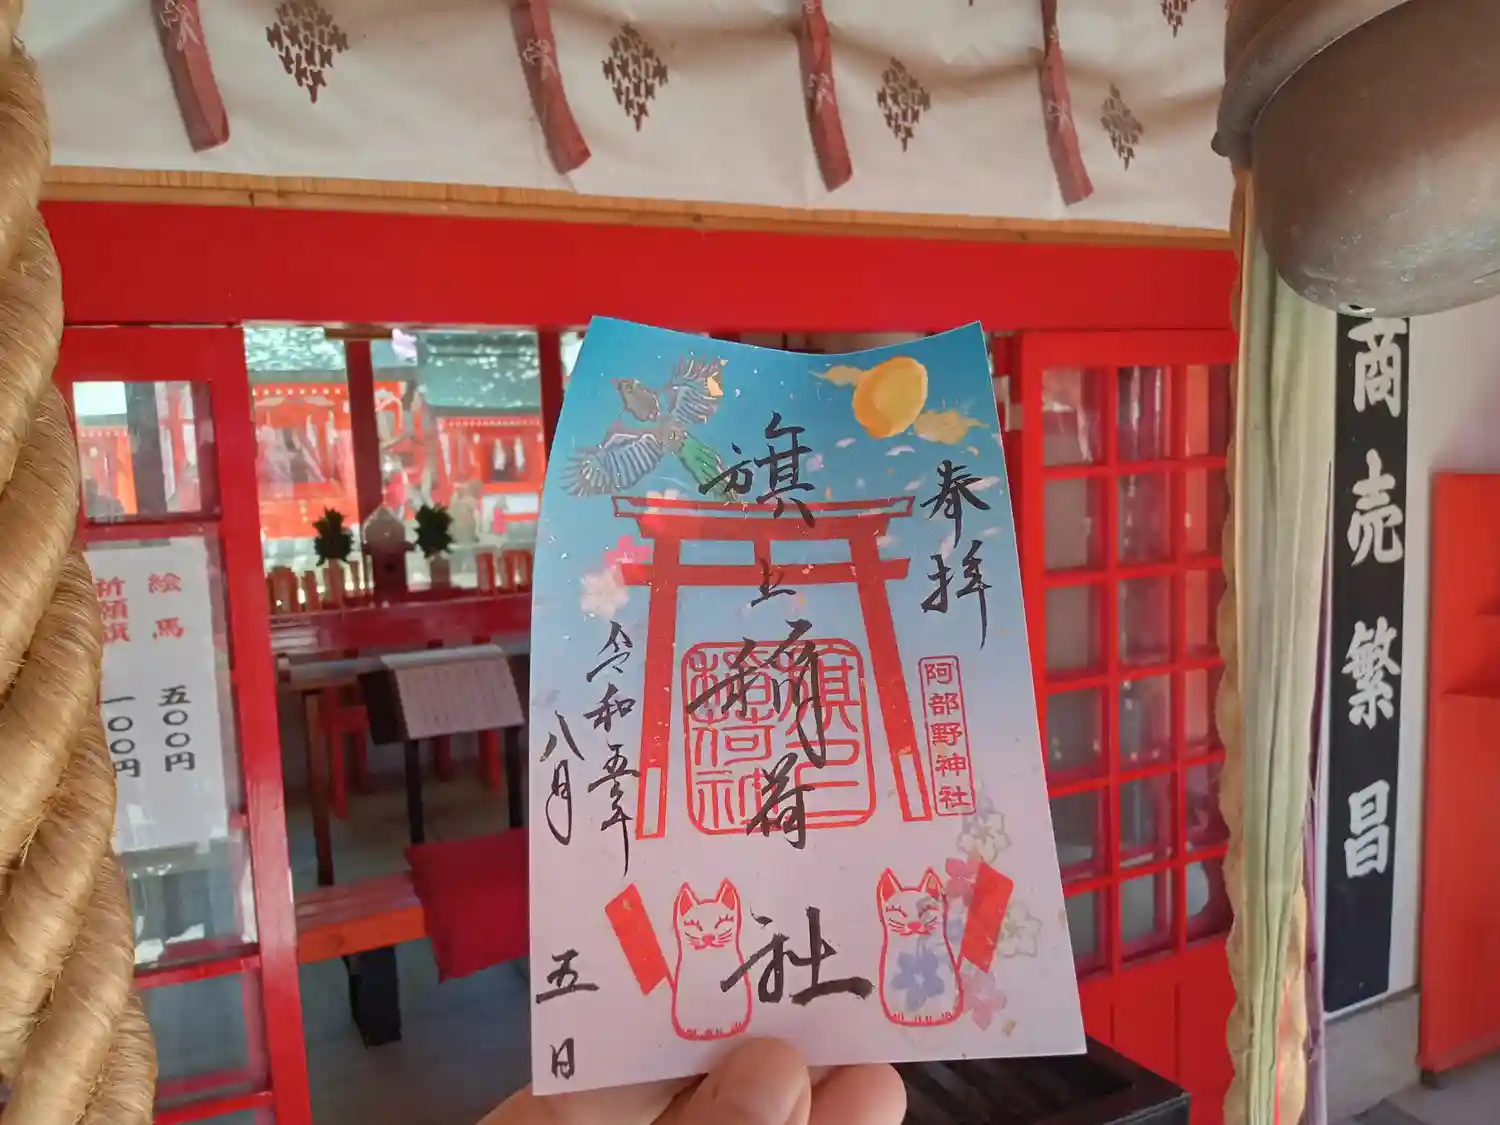 奉拝
阿部野神社
旗上稲荷社
旗上稲荷社
令和五年
八月
五日
絵馬 五〇〇円
祈願旗 一〇〇円
商売繁昌